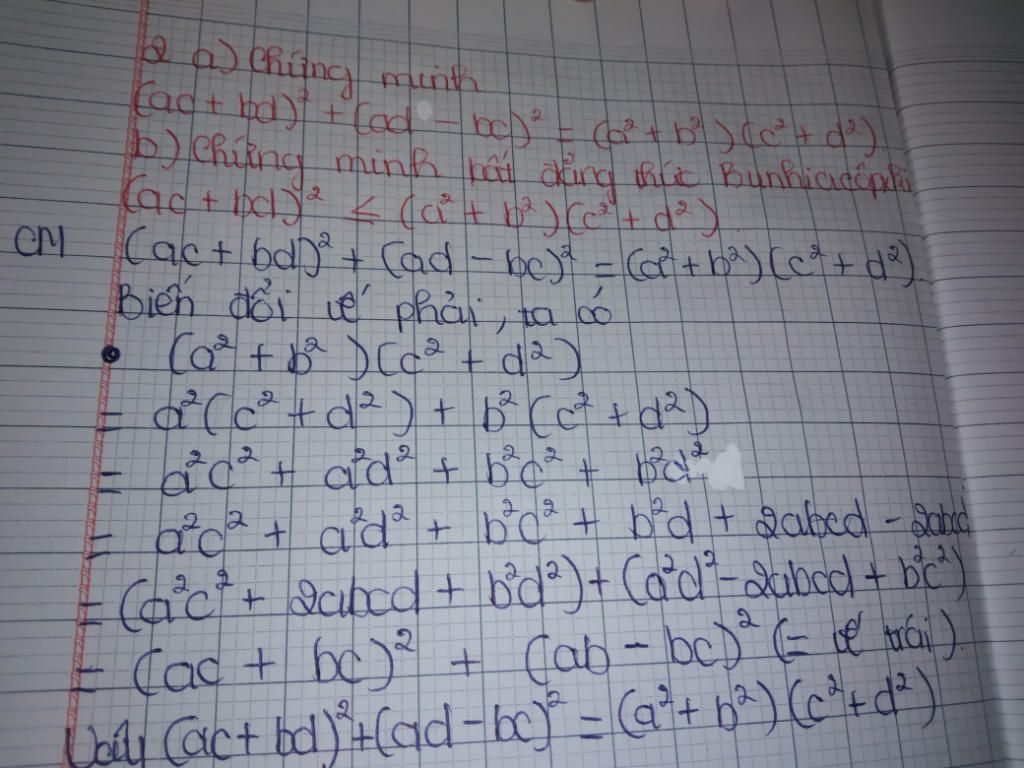 2 a) Chứng minh
(ac + bd)² + (ad - bc)² = (a² + b²)(c² + d²)
b) Chứng minh bất đẳng thức Bunhiacốpxki
(ac + bd)² ≤ (a² + b²)(c² + d²)
CM (ac + bd)² + (ad - bc)² = (a² + b²)(c² + d²)
Biến đổi vế phải, ta có
• (a² + b²)(c² + d²)
= a²(c² + d²) + b²(c² + d²)
= a²c² + a²d² + b²c² + b²d²
= a²c² + a²d² + b²c² + b²d + 2abcd - 2abcd
= (a²c² + 2abcd + b²d²) + (a²d² - 2abcd + b²c²)
= (ac + bc)² + (ab - bc)² (= vế trái).
Vậy (ac + bd)² + (ad - bc)² = (a² + b²)(c² + d²)